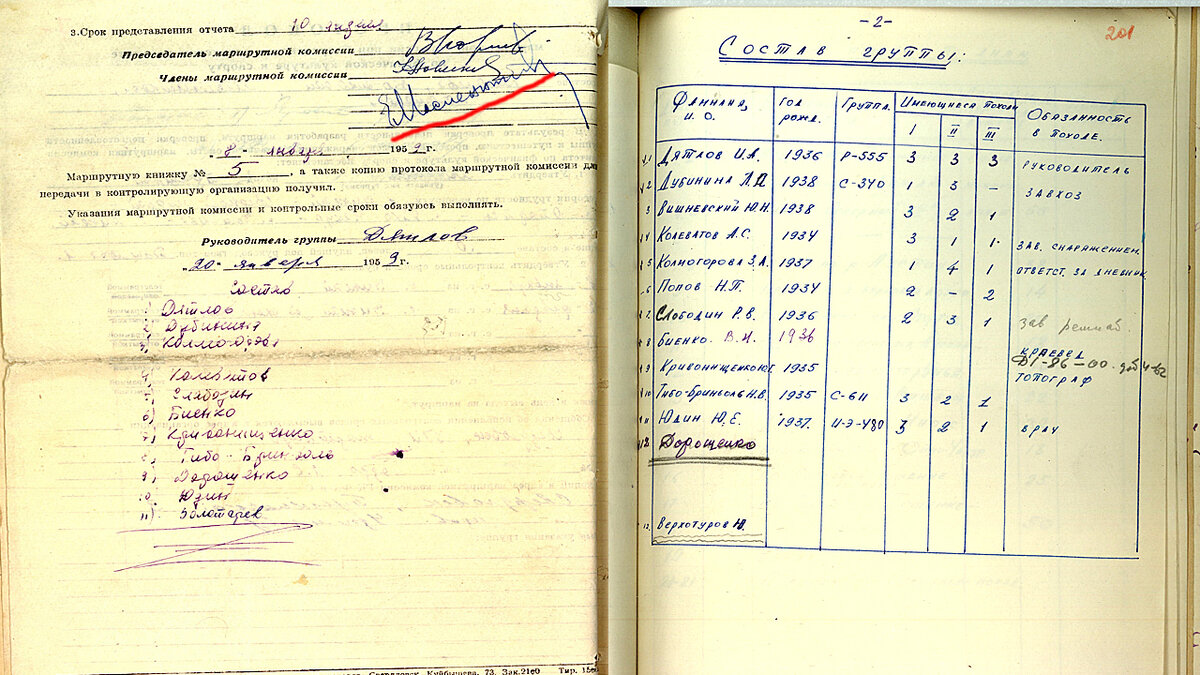 3.Срок представления отчета 10
Председатель маршрутной комиссии
Члены маршрутной комиссии
"8" января 1959 г.
Маршрутную книжку № 5, а также копию протокола маршрутной комиссии для
передачи в контролирующую организацию получил.
Указания маршрутной комиссии и контрольные сроки обязуюсь выполнять.
Руководитель группы Дятлов
"20" января 1959 г.
Состав
1) Дятлов
2) Дубинина
3) Колмогорова
4) Колеватов
5) Слободин
6) Биенко
7) Кривонищенко
8) Тибо-Бриньоль
9) Дорошенко
10) Юдин
11) Золотарев
Свердловск, Куйбышева, 73. Зак.
-2-
201
Состав группы:
Фамилия, И.О. Год рожд. Группа. Имеющиеся походы I II III Обязанность в походе.
1 Дятлов И.А. 1936 Р-555 3 3 3 руководитель
2 Дубинина Л.А 1938 С-340 1 3 – завхоз
3 Вишневский Ю.Н. 1938 3 2 1
4 Колеватов А.С. 1934 3 1 1 зав. снаряжением.
5 Колмогорова З.А. 1937 1 4 1 ответст. за дневник
6 Попов Н.П. 1934 2 - 2
7 Слободин Р.В. 1936 2 3 1 зав
8 Биенко В. 1936
краевед
9 Кривонищенко 1935
топограф
10 Тибо-Бриньоль Н.В. 1935 С-611 3 2 1
11 Юдин Ю.Е. 1937 И-Э-480 3 2 1 врач
12 Дорошенко
Верхотуров Ю.